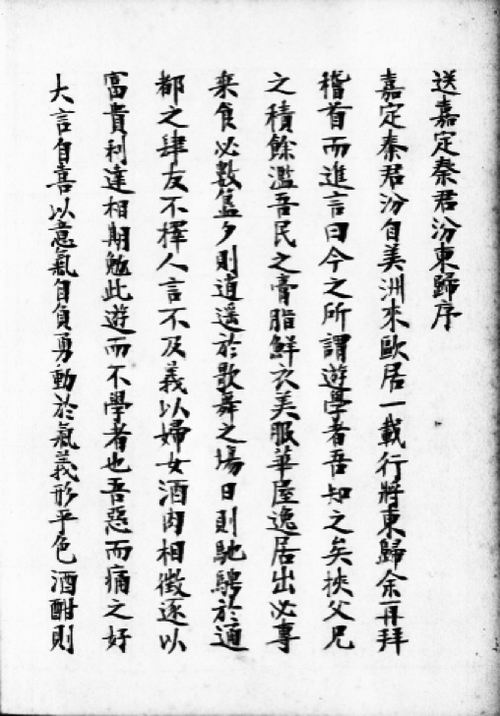 送嘉定秦君汾東歸序
嘉定秦君汾自美洲來歐居一載行將東歸余再拜
稽首而進言曰今之所謂遊學者吾知之矣挾父兄
之積餘濫吾民之膏脂鮮衣美服華屋逸居出必專
乘食必數簋夕則逍遥於歌舞之場日則馳騁於通
都之肆友不擇人言不及義以婦女酒肉相徵逐以
富貴利達相期勉此遊而不學者也吾惡而痛之好
大言自喜以意氣自負勇動於氣義形乎色酒酣則